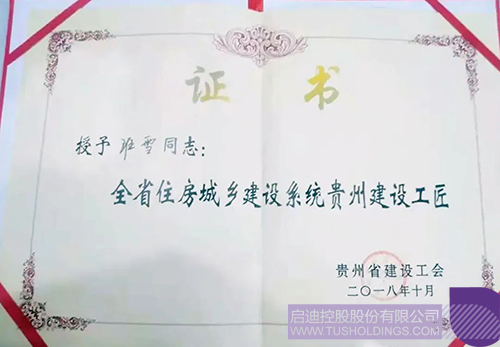 证 书
授予班雪同志：
全省住房城乡建设系统贵州建设工匠
贵州省建设工会
二〇一八年十月
启迪控股股份有限公司
WWW.TUSHOLDINGS.COM